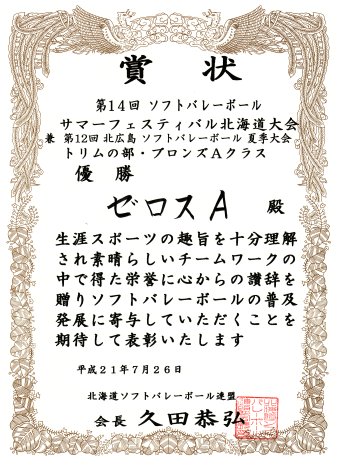 賞状
第14回 ソフトバレーボール
サマーフェスティバル北海道大会
兼 第12回 北広島 ソフトバレーボール 夏季大会
トリムの部・ブロンズAクラス
優勝
ゼロスA 殿
生涯スポーツの趣旨を十分理解
され素晴らしいチームワークの
中で得た栄誉に心からの讃辞を
贈りソフトバレーボールの普及
発展に寄与していただくことを
期待して表彰いたします
平成21年7月26日
北海道ソフトバレーボール連盟
会長 久田恭弘